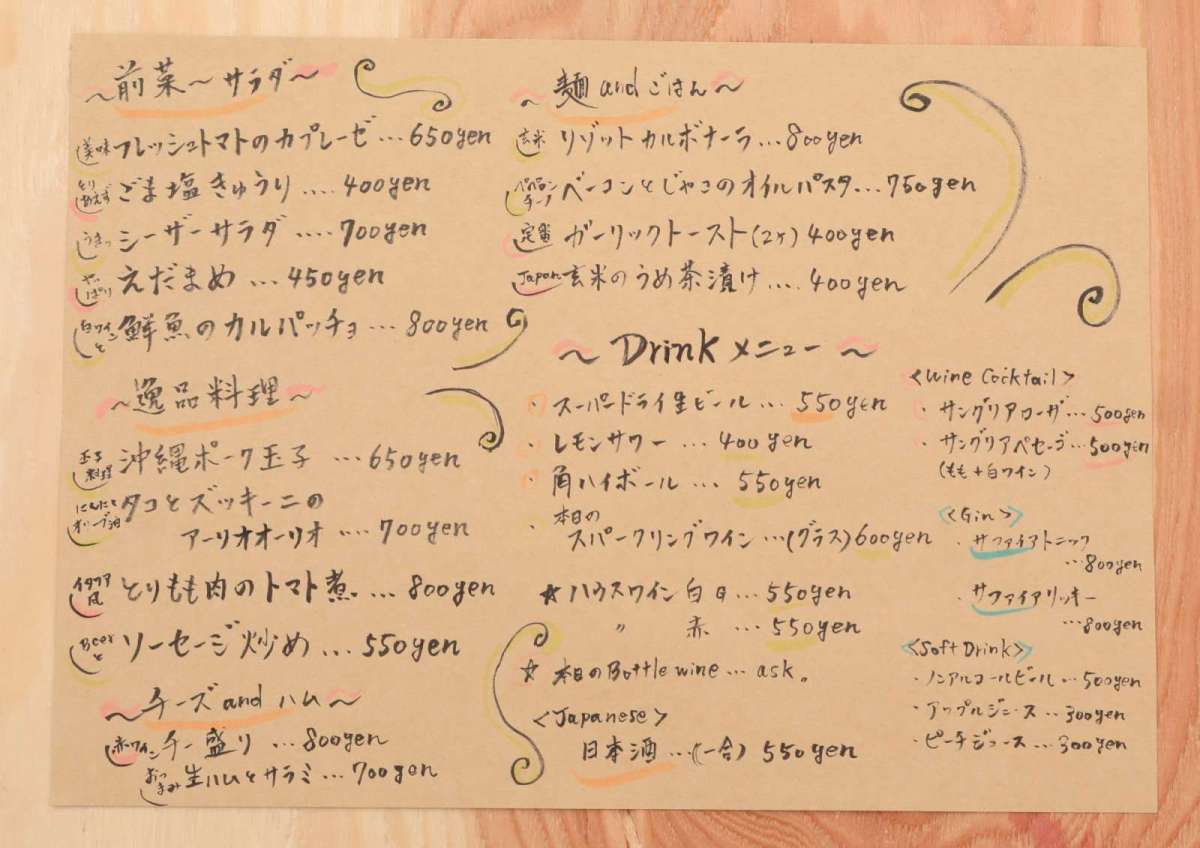 ～前菜～サラダ～
美味 フレッシュトマトのカプレーゼ…650yen
とりあえず ごま塩きゅうり‥‥400yen
うまっ シーザーサラダ‥‥700yen
やっぱり えだまめ…450yen
白ワインと 鮮魚のカルパッチョ…800yen
～逸品料理～
玉子料理 沖縄ポーク玉子…650yen
にんにくオリーブ油 タコとズッキーニの
アーリオオーリオ‥‥700yen
イタリア風 とりもも肉のトマト煮…800yen
Beerと ソーセージ炒め…550yen
～チーズandハム～
赤ワイン チー盛り…800yen
おつまみ 生ハムとサラミ…700yen
～麺andごはん～
玄米 リゾットカルボナーラ…800yen
ペペロンチーノ ベーコンとじゃこのオイルパスタ…750yen
定番 ガーリックトースト(2ヶ)400yen
Japan 玄米のうめ茶漬け‥‥400yen
～Drinkメニュー～
・スーパードライ生ビール…550yen
・レモンサワー…400yen
・角ハイボール…550yen
・本日の
スパークリングワイン…(グラス)600yen
☆ハウスワイン白日…550yen
〃 赤…550yen
☆本日のBottle wine…ask。
<Japanese>
日本酒…(一合)550yen
<Wine Cocktail>
・サングリアローザ…500yen
・サングリアペセーゴ…500yen
(もも+白ワイン)
<Gin>
・サファイアトニック
…800yen
サファイアリッキー
…800yen
<Soft Drink>
・ノンアルコールビール…500yen
・アップルジュース…300yen
・ピーチジュース…300yen